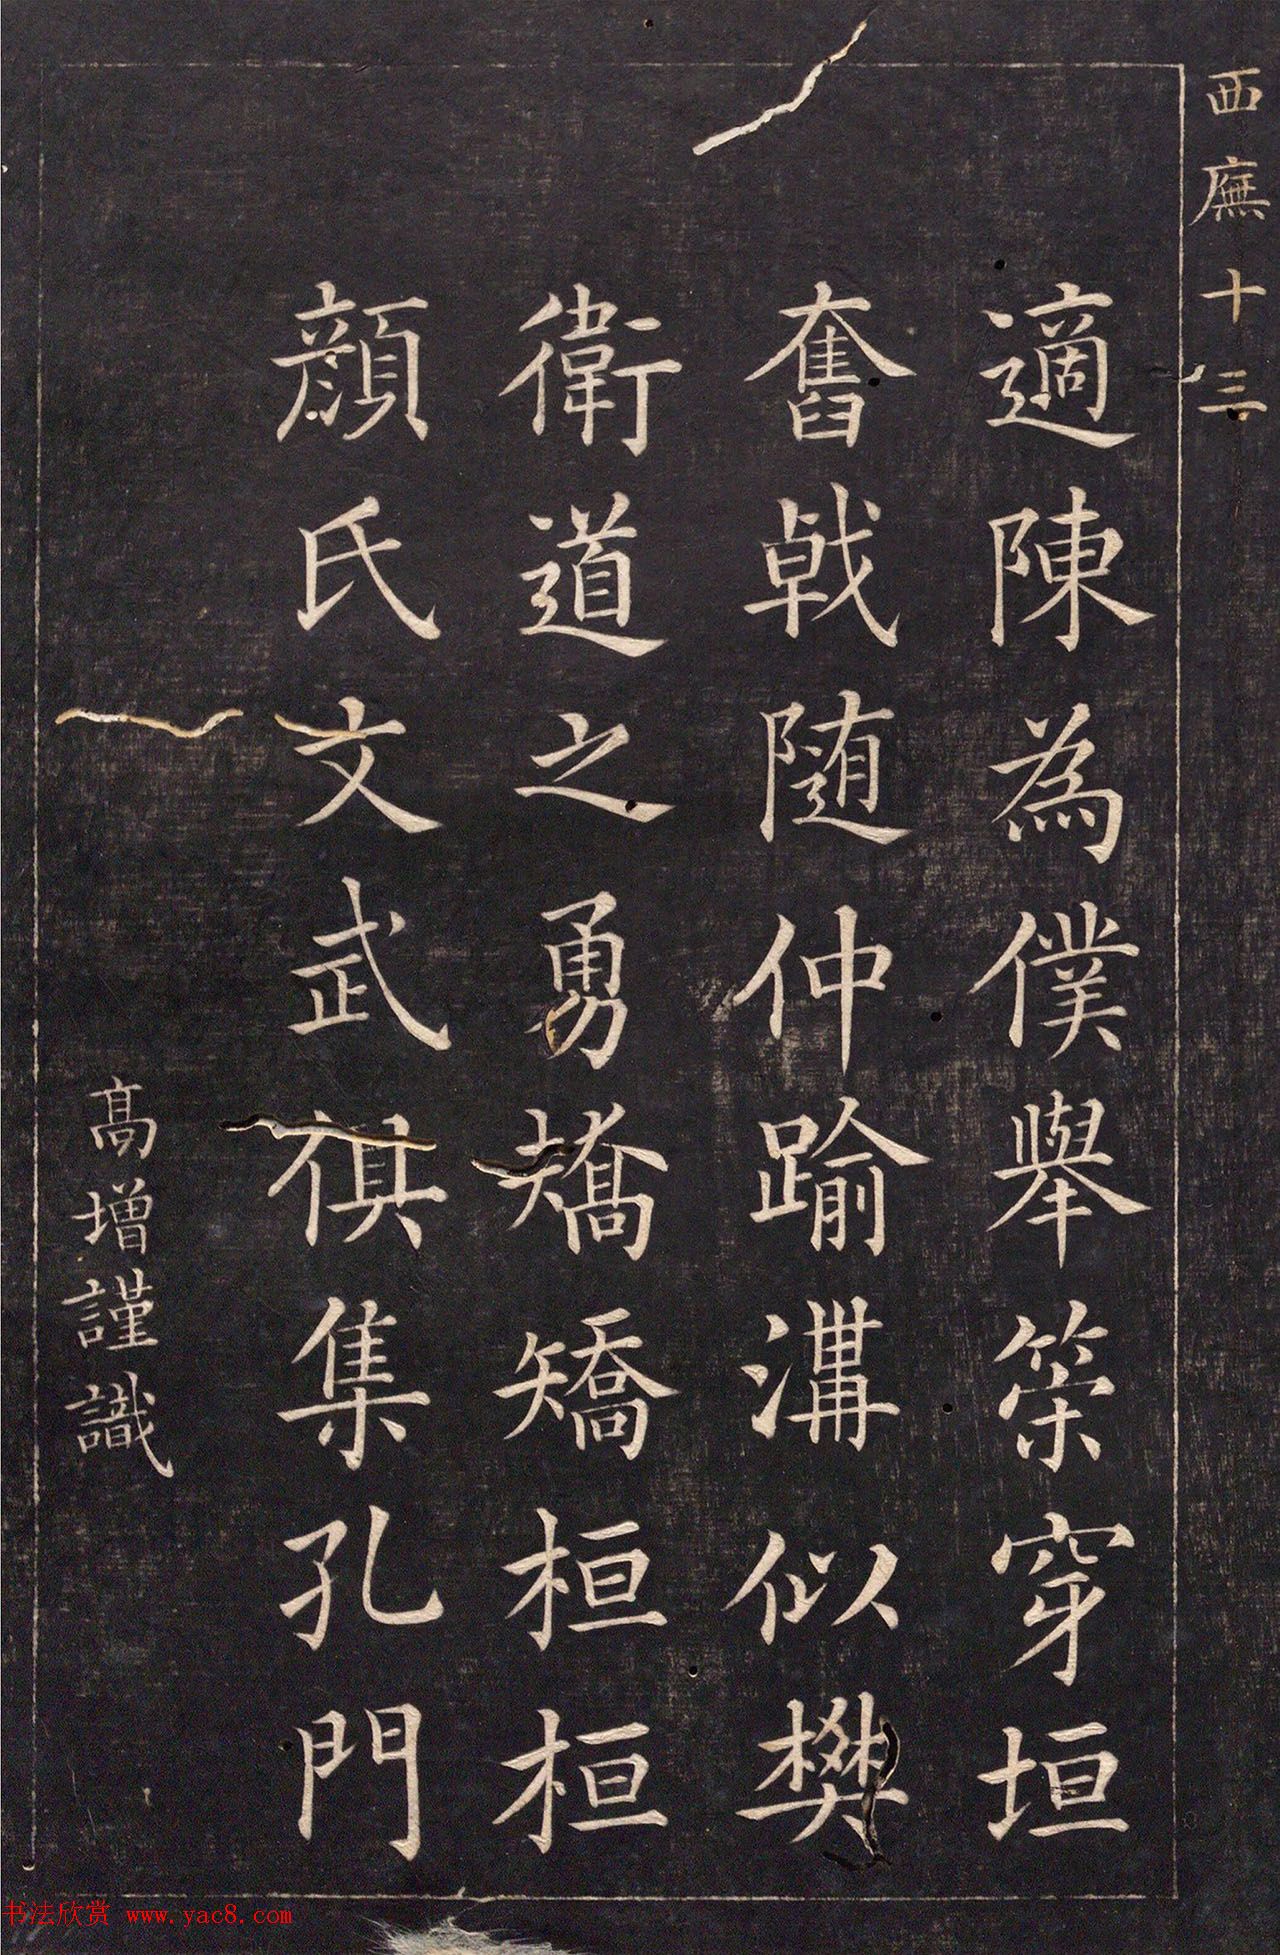 西廡十三
適陳為僕舉筞穿垣
奮戟随仲踰溝似樊
衛道之勇矯矯桓桓
顏氏文武俱集孔門
高增謹識
书法欣赏 www.yac8.com